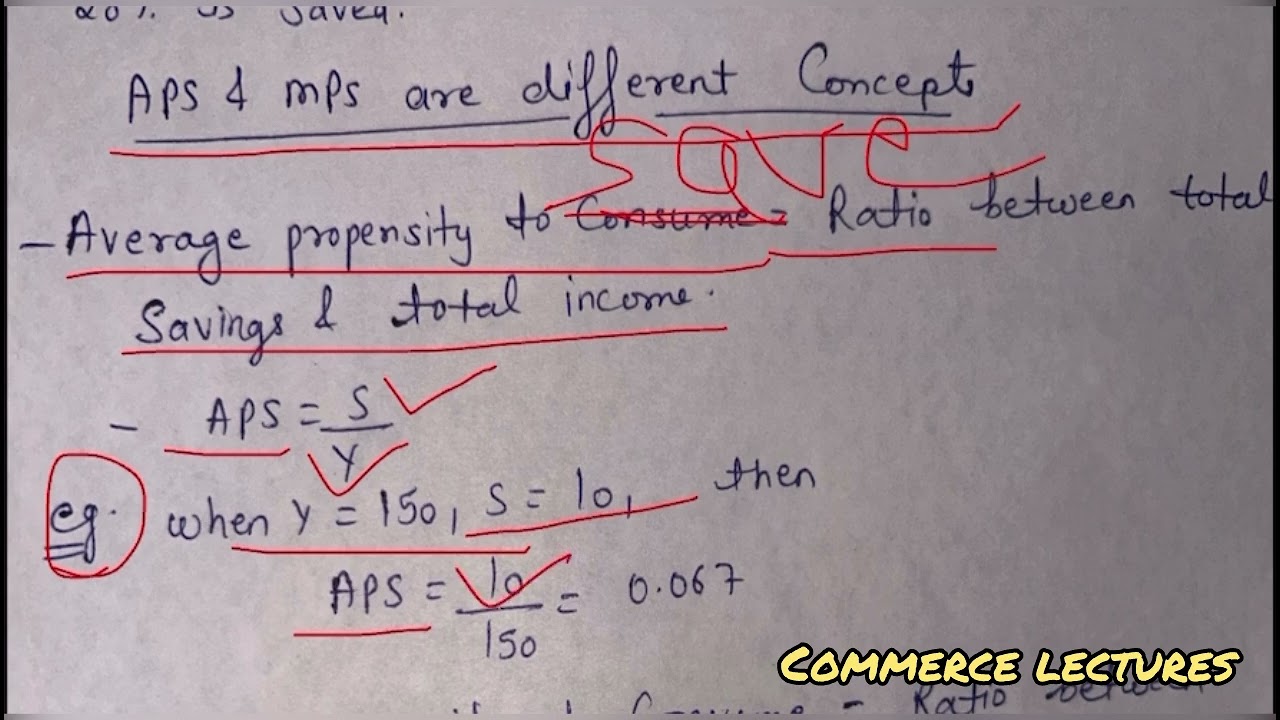 20% is saved.
APS & MPS are different Concepts
save
- Average propensity to Consume = Ratio between total
Savings & total income.
- APS = S/Y
eg. when Y = 150, S = 10, then
APS = 10/150 = 0.067
Consume - Ratio between
COMMERCE LECTURES